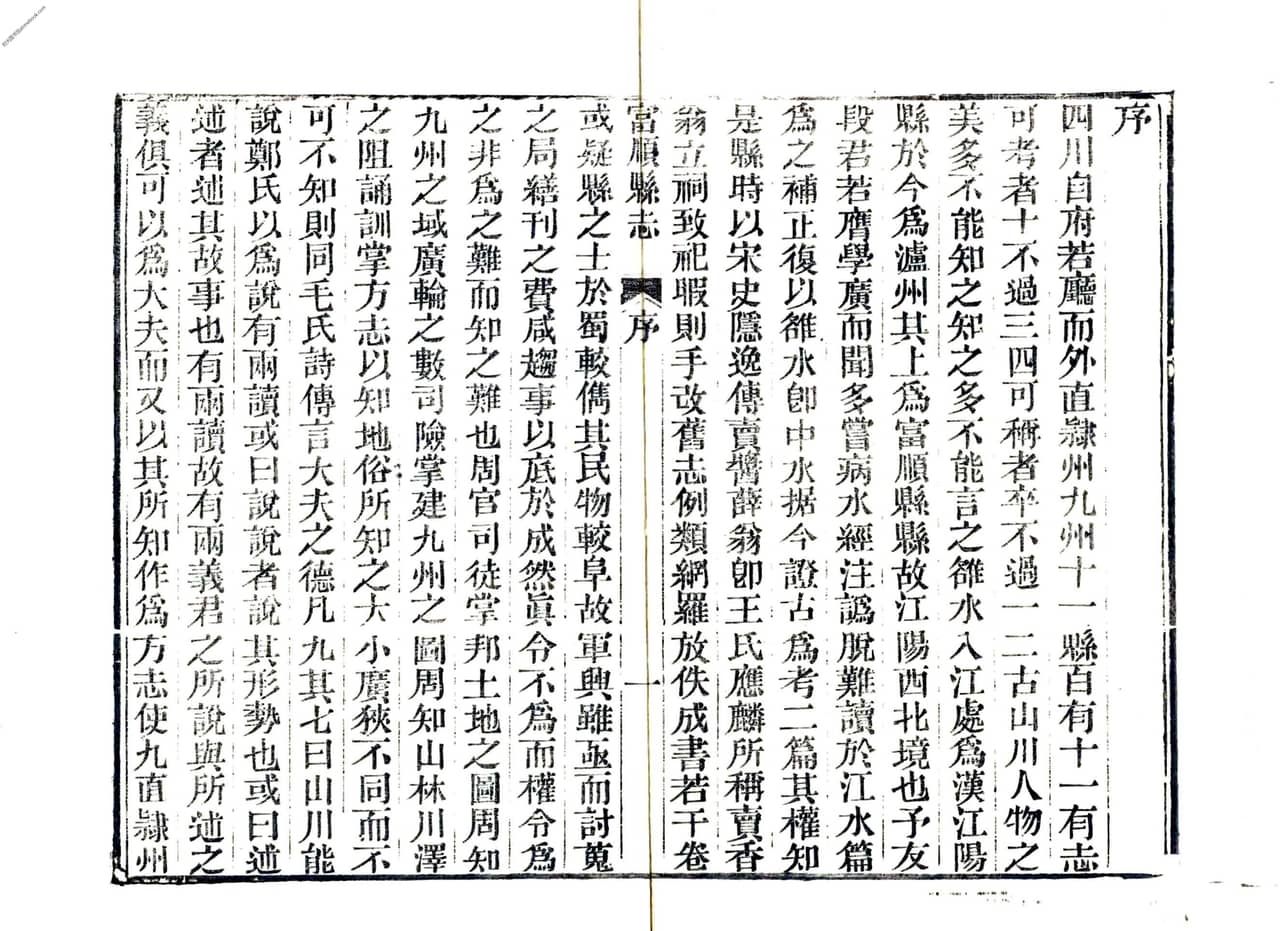 序
四川自府若廳而外直隸州九州十一縣百有十一有志
可考者十不過三四可稱者卒不過一二古山川人物之
美多不能知之知之多不能言之雒水入江處爲漢江陽
縣於今爲瀘州其上爲富順縣縣故江陽西北境也予友
段君若膺學廣而聞多嘗病水經注譌脫難讀於江水篇
爲之補正復以雒水卽中水据今證古爲考二篇其權知
是縣時以宋史隱逸傳賣醬薛翁卽王氏應麟所稱賣香
翁立祠致祀暇則手改舊志例類網羅放佚成書若干卷
富順縣志 序 一
或疑縣之士於蜀較儁其民物較阜故軍興雖亟而討蒐
之局繕刊之費咸趨事以底於成然眞令不爲而權令爲
之非爲之難而知之難也周官司徒掌邦土地之圖周知
九州之域廣輪之數司險掌建九州之圖周知山林川澤
之阻誦訓掌方志以知地俗所知之大小廣狹不同而不
可不知則同毛氏詩傳言大夫之德凡九其七曰山川能
說鄭氏以爲說有兩讀或曰說說者說其形勢也或曰述
述者述其故事也有兩讀故有兩義君之所說與所述之
義俱可以爲大夫而又以其所知作爲方志使九直隸州